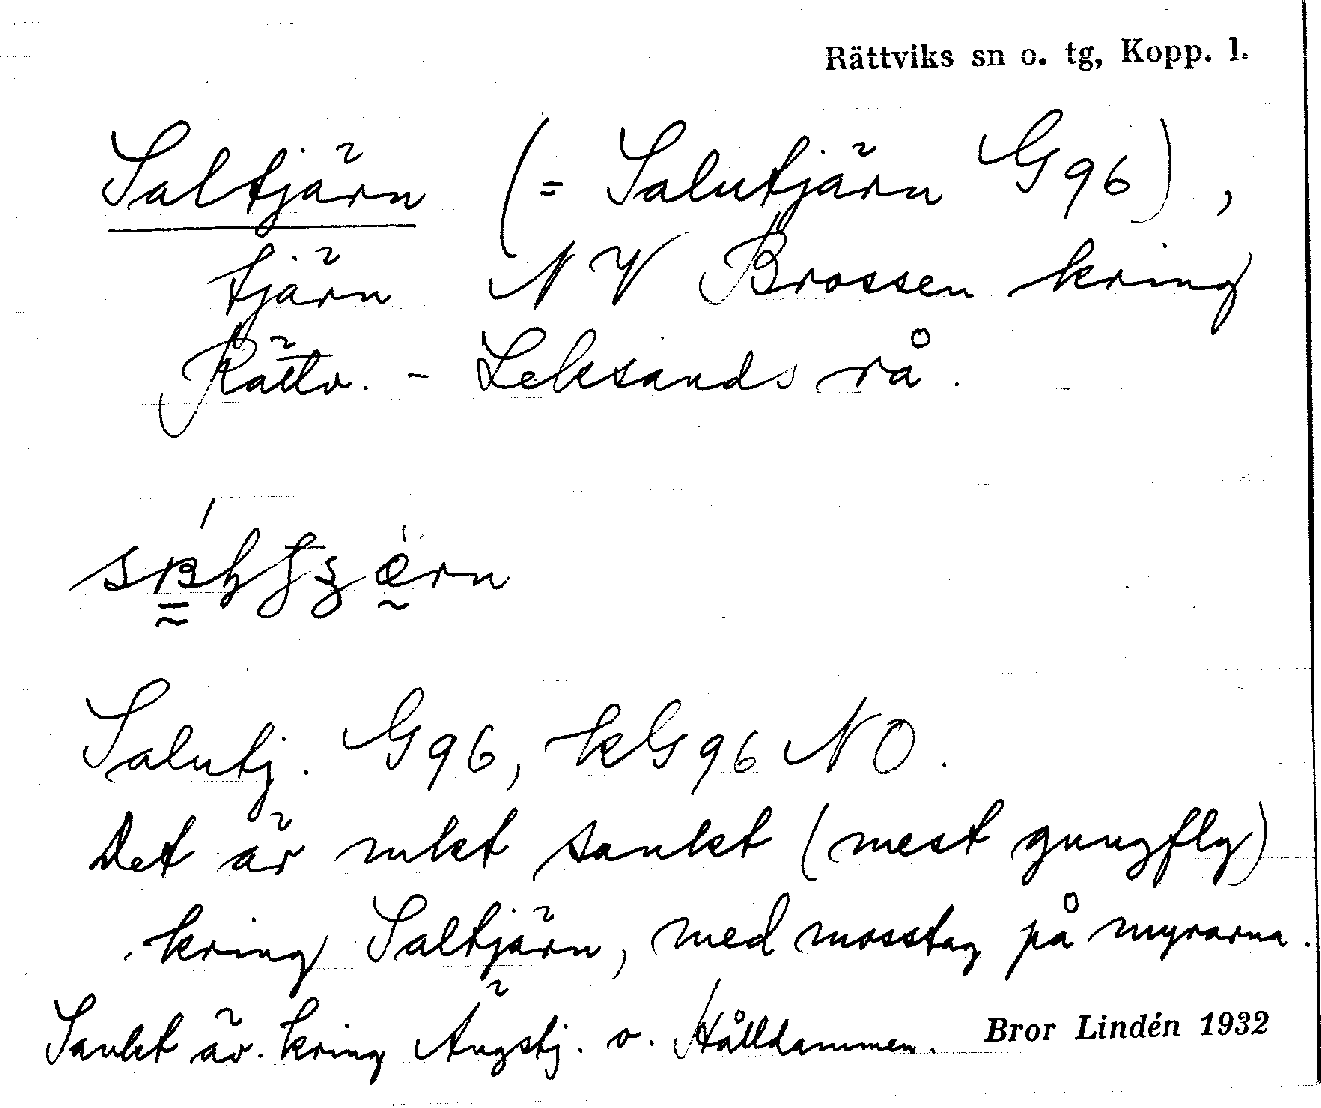 Rättviks sn o. tg, Kopp. l.
Saltjärn (= Salutjärn G96),
tjärn NV Brossen kring
Rättv. - Leksands rå.
Salutj. G96, kG96 NO.
Det är mkt sankt (mest gungfly)
kring Saltjärn, med mosstag på myrarna.
Sankt äv. kring Ängstj. o. Hålldammen.
Bror Lindén 1932